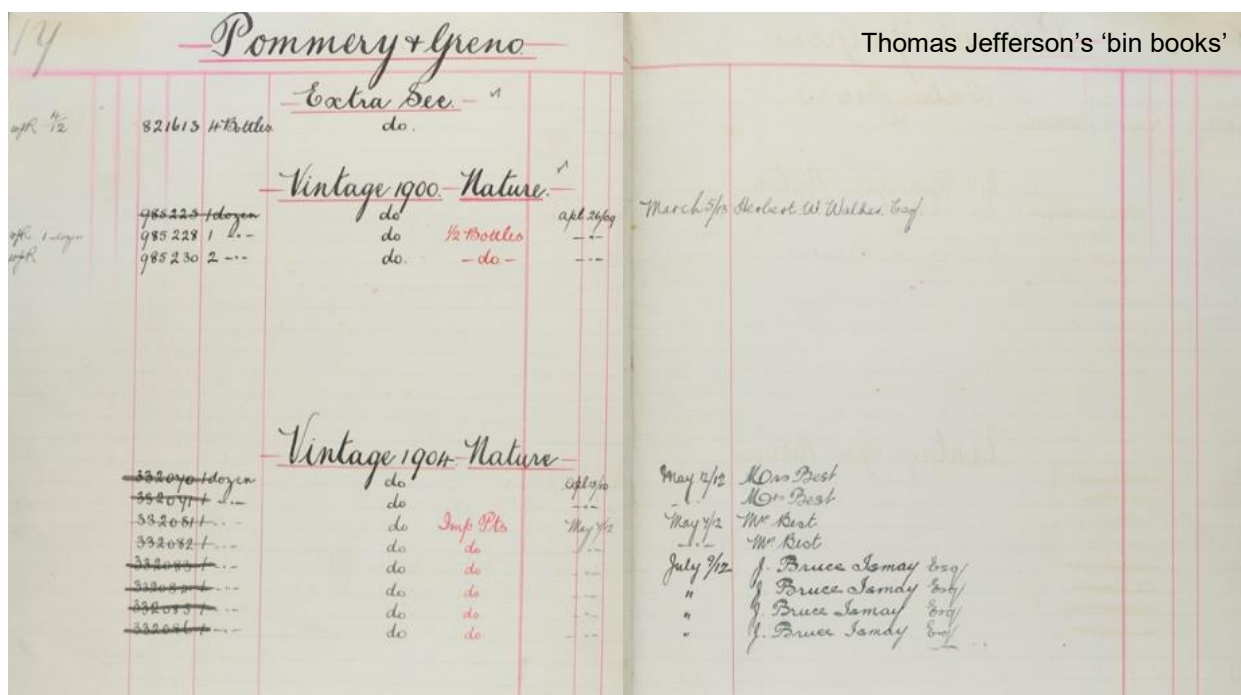 14 Pommery & Greno Thomas Jefferson’s ‘bin books’
Extra Sec.
821613 4 Bottles do.
Vintage 1900. Nature.
985223 1 dozen do Apl 26/09 March 5/13 Herbert W. Walker. Esq.
985228 1 -"- do 1/2 Bottles -"-
985230 2 -"- do. -do- -"-
Vintage 1904 Nature
332070 1 dozen do Apl 9/10 May 12/12 Mrs Best
1 -"- do -"- Mrs Best
332081 1 -"- do Imp Pts May 7/12 May 7/12 Mr Best
332082 1 -"- do do -"- -"- Mr Best
332083 1 -"- do do -"- July 9/12 J. Bruce Ismay Esq/
332084 1 -"- do do -"- " J. Bruce Ismay Esq/
332085 1 -"- do do -"- " J. Bruce Ismay Esq/
332086 1 -"- do do -"- " J. Bruce Ismay Esq/